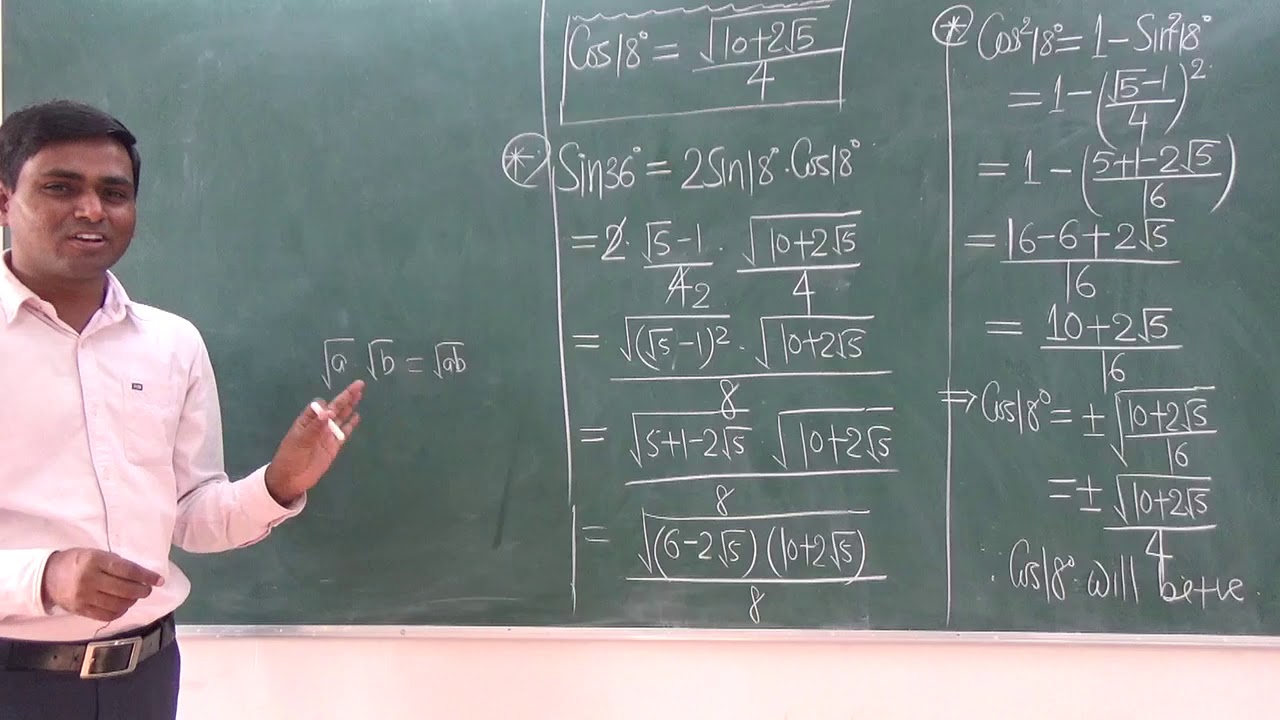 √a √b = √ab
Cos18° = √(10+2√5)/4
* Sin36° = 2Sin18°.Cos18°
= 2. (√5-1)/4 2 . √(10+2√5)/4
= √(√5-1)² . √(10+2√5) / 8
= √(5+1-2√5) √(10+2√5) / 8
= √((6-2√5)(10+2√5)) / 8
* Cos²18° = 1 - Sin²18°
= 1 - ((√5-1)/4)²
= 1 - ((5+1-2√5)/16)
= (16-6+2√5)/16
= (10+2√5)/16
⇒ Cos18° = ± √((10+2√5)/16)
= ± √(10+2√5)/4
∵ Cos18° will be +ve